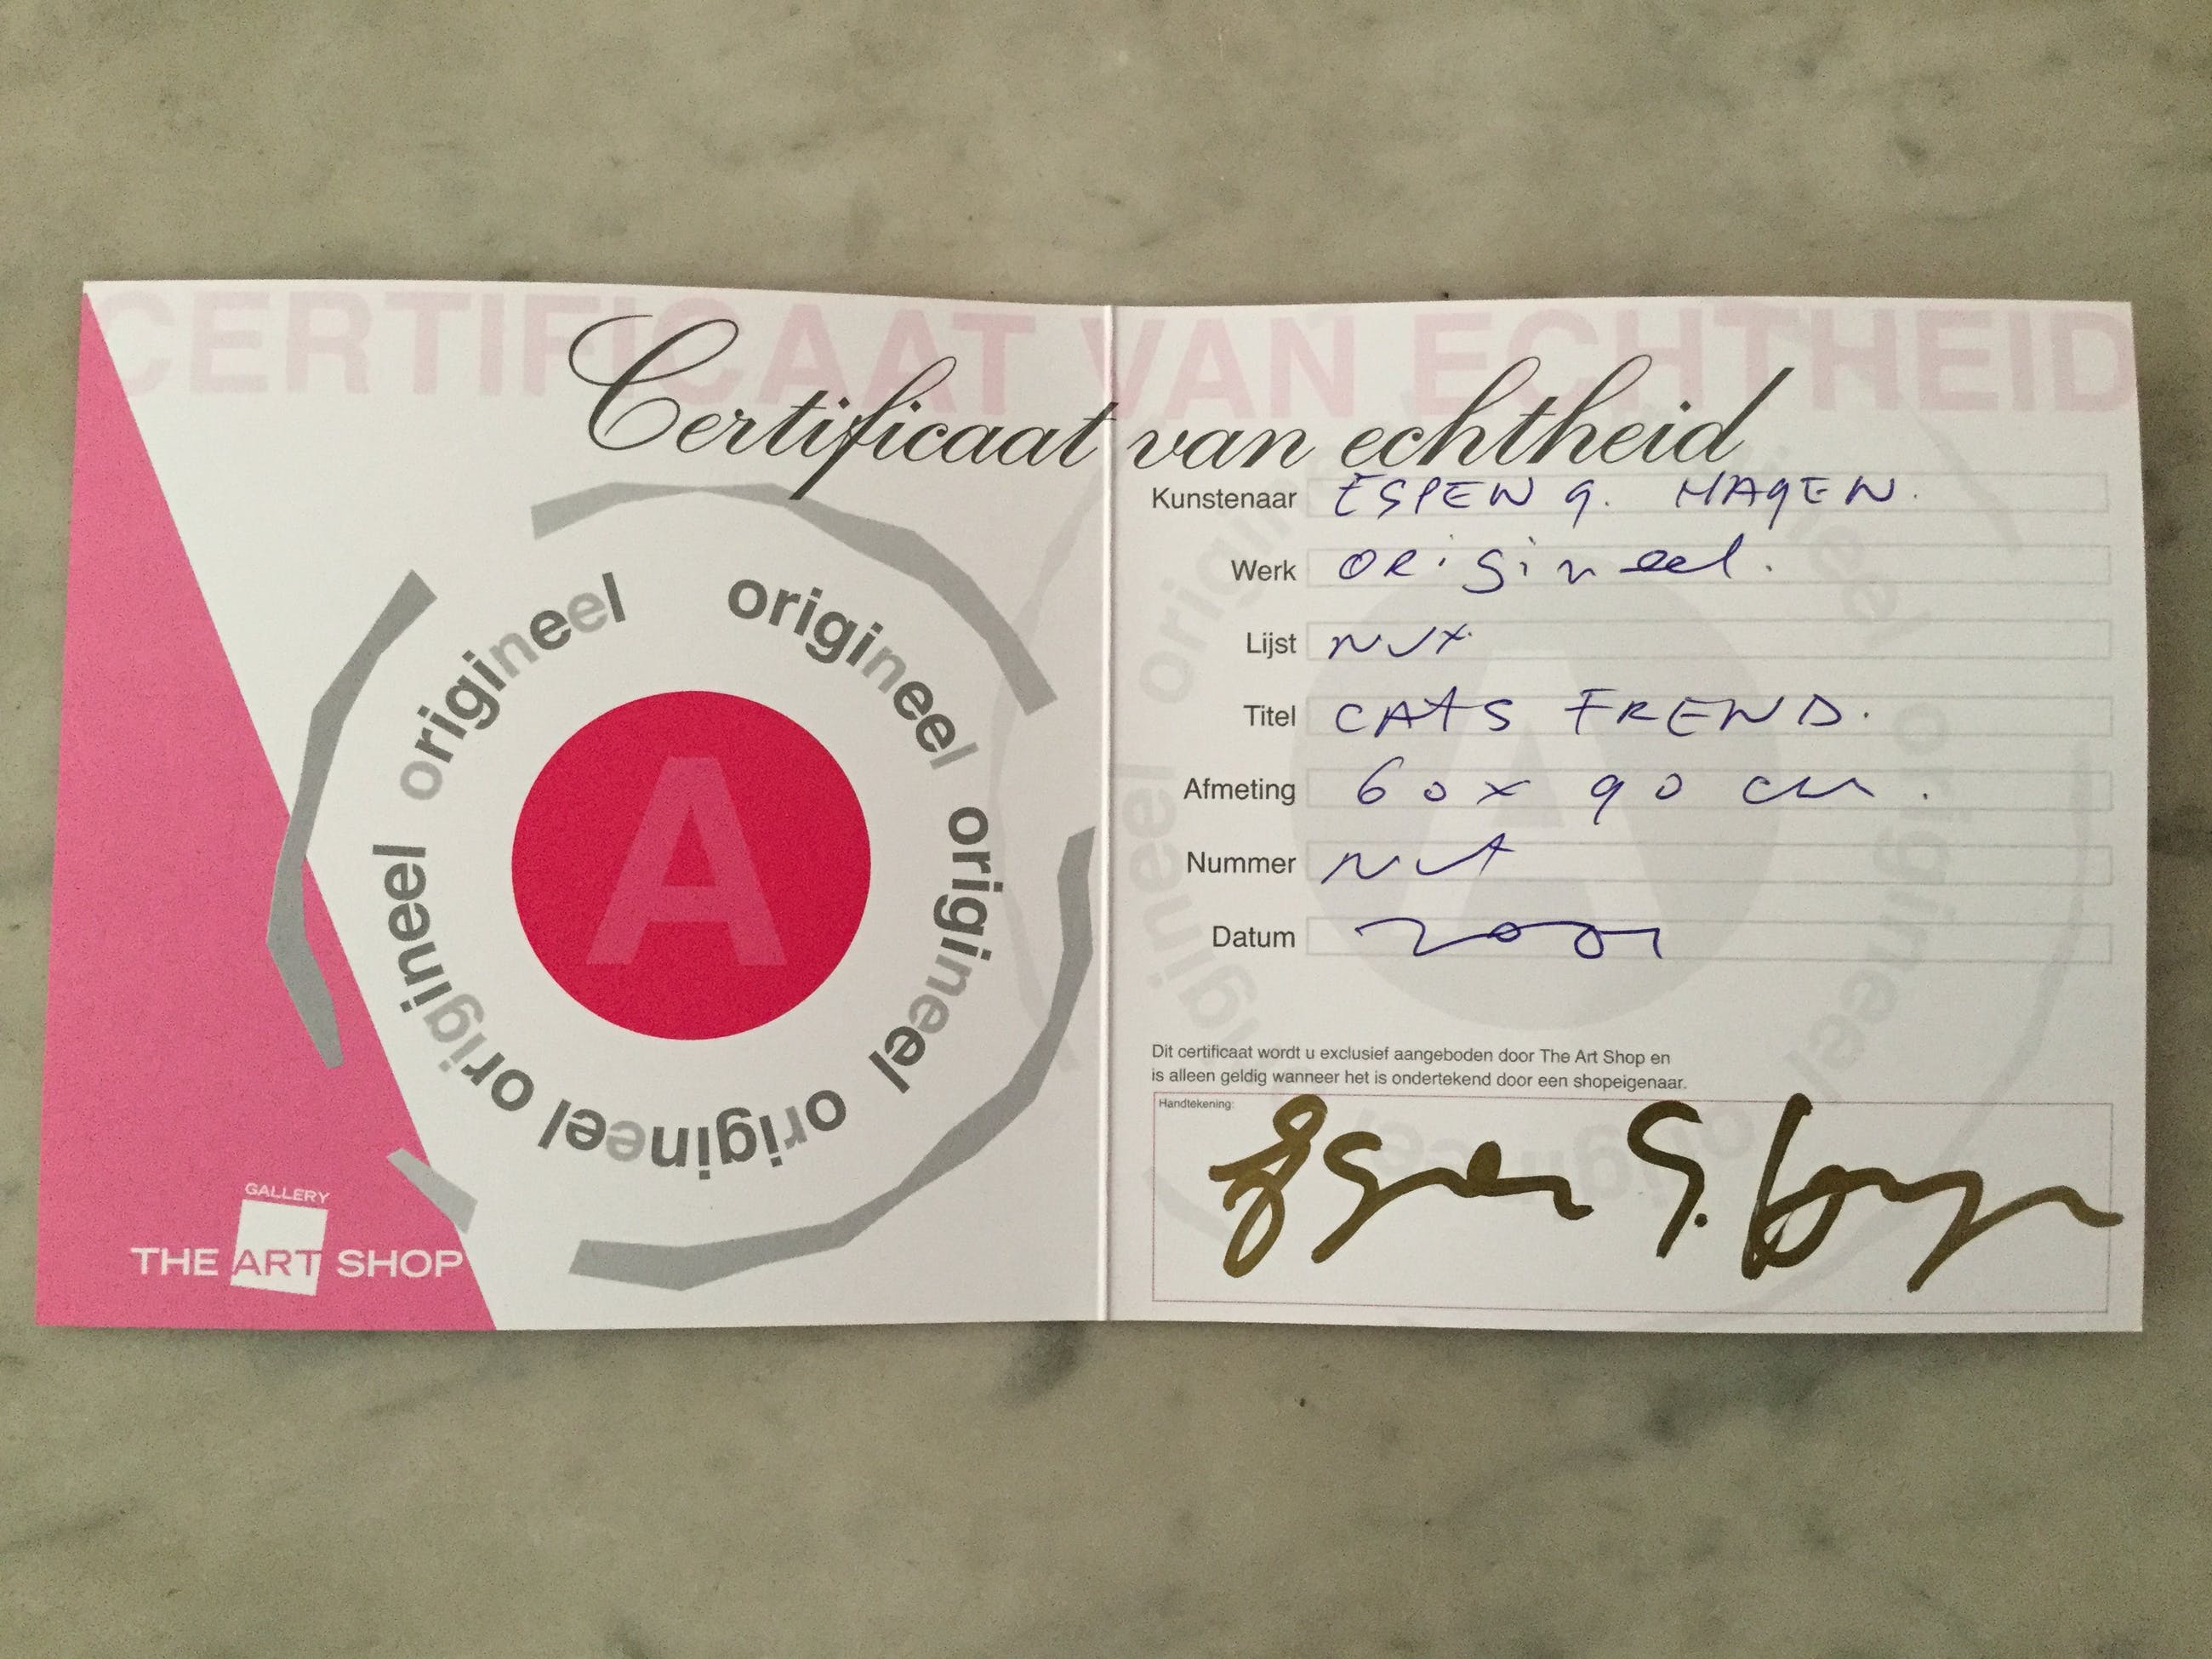 CERTIFICAAT VAN ECHTHEID
Certificaat van echtheid
origineel origineel origineel origineel origineel
A
GALLERY
THE ART SHOP
Kunstenaar ESPEN G. HAGEN.
Werk ORiGineel.
Lijst
Titel CATS FREND.
Afmeting 60 x 90 cm.
Nummer
Datum 2001
Dit certificaat wordt u exclusief aangeboden door The Art Shop en
is alleen geldig wanneer het is ondertekend door een shopeigenaar.
Handtekening:
Espen G. Hagen